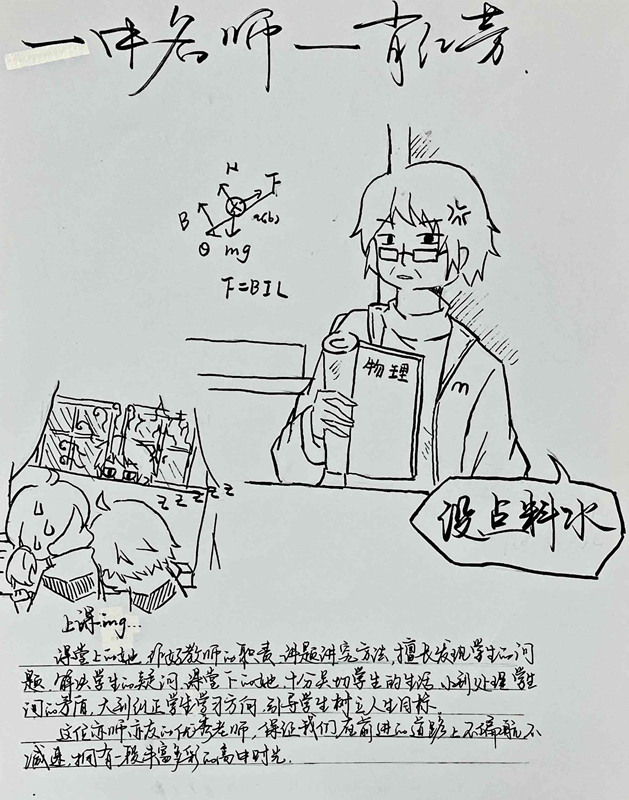 一中名师—肖红芳
N
F
B
a(b)
θ mg
F=BIL
物理
m
z z z z z z
没点料水
上课ing...
课堂上的她，作好教师的职责，讲题讲究方法，擅长发现学生的问
题，解决学生的疑问，课堂下的她，十分关切学生的生活，小到处理学生
间的矛盾，大到纠正学生学习方向，引导学生树立人生目标。
这位亦师亦友的优秀老师，保证我们在前进的道路上不偏航不
减速，拥有一段丰富多彩的高中时光。